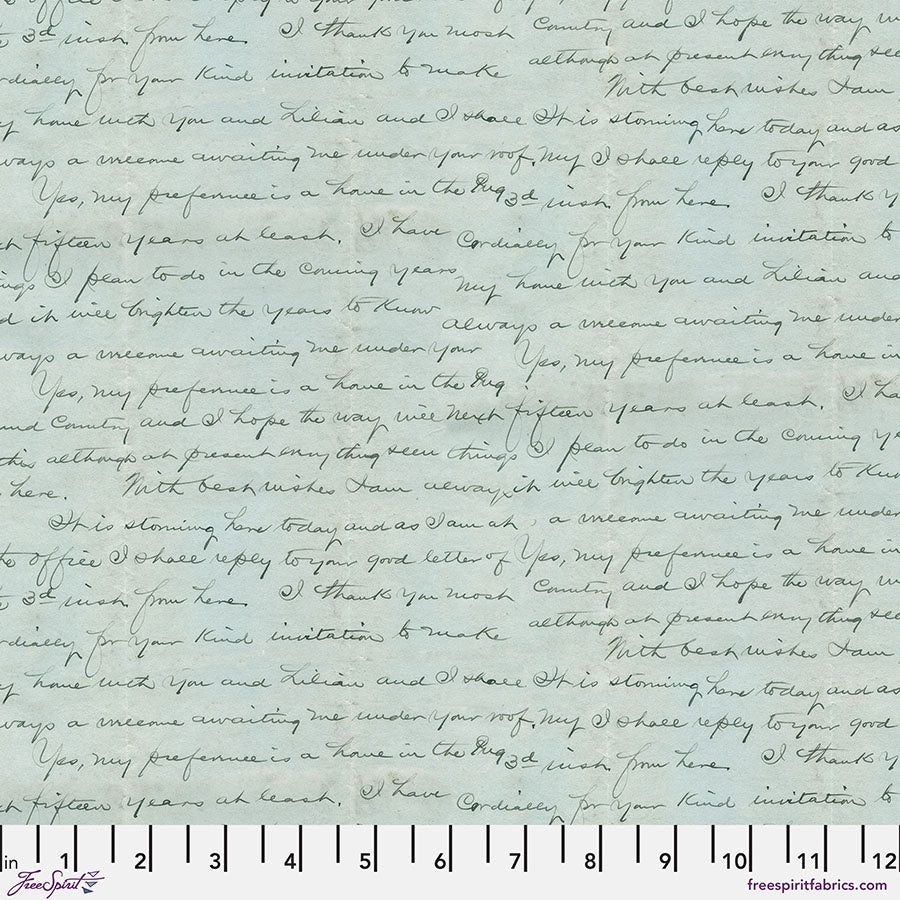 3d inst. from here. I thank you most Country and I hope the way
Cordially for your kind invitation to make although at present everything
With best wishes I am
home with you and Lilian and I shall It is storming here today and as
always a welcome awaiting me under your roof. My I shall reply to your good
Yes, my preference is a home in the 3d inst. from here. I thank
fifteen years at least. I have Cordially for your kind invitation to
I plan to do in the coming years My home with you and Lilian and
it will brighten the years to know always a welcome awaiting me under
always a welcome awaiting me under your Yes, my preference is a home in
Yes, my preference is a home in the next fifteen years at least. I
and Country and I hope the way will things I plan to do in the coming
this although at present everything seem it will brighten the years to know
here. With best wishes I am always a welcome awaiting me under
It is storming here today and as I am at Yes, my preference is a home in
the office I shall reply to your good letter of Country and I hope the way
3d inst. from here. I thank you most although at present everything
Cordially for your kind invitation to make With best wishes I am
home with you and Lilian and I shall It is storming here today and as
always a welcome awaiting me under your roof. My I shall reply to your good
Yes, my preference is a home in the 3d inst. from here. I thank
fifteen years at least. I have Cordially for your kind invitation to
in 1 2 3 4 5 6 7 8 9 10 11 12
FreeSpirit freespiritfabrics.com